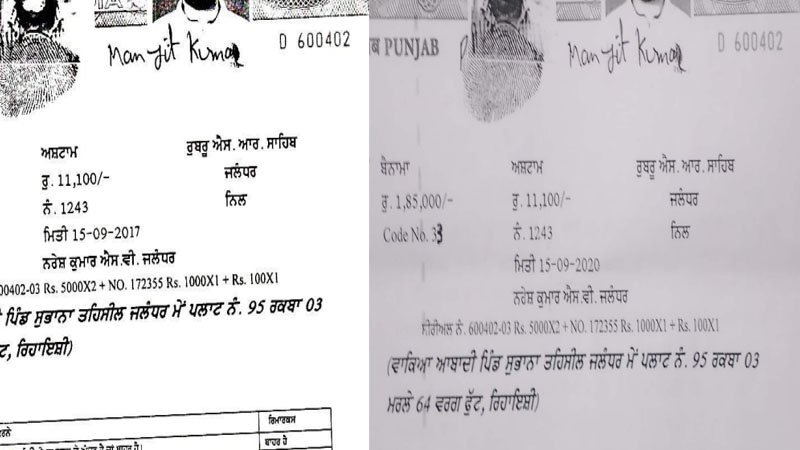 D 600402
Manjit Kumar
ਅਸ਼ਟਾਮ ਰੂਬਰੂ ਐਸ. ਆਰ. ਸਾਹਿਬ
ਰੁ. 11,100/- ਜਲੰਧਰ
ਨੰ. 1243 ਨਿਲ
ਮਿਤੀ 15-09-2017
ਨਰੇਸ਼ ਕੁਮਾਰ ਐਸ.ਵੀ. ਜਲੰਧਰ
00402-03 Rs. 5000X2 + NO. 172355 Rs. 1000X1 + Rs. 100X1
ਪਿੰਡ ਸੁਭਾਨਾ ਤਹਿਸੀਲ ਜਲੰਧਰ ਮੇਂ ਪਲਾਟ ਨੰ. 95 ਰਕਬਾ 03
ਟ, ਰਿਹਾਇਸ਼ੀ)
ਰਿਮਾਰਕਸ
ਬਾਹਰ ਹੈ
ਬ PUNJAB
D 600402
Manjit Kumar
ਬੈਨਾਮਾ ਅਸ਼ਟਾਮ ਰੂਬਰੂ ਐਸ. ਆਰ. ਸਾਹਿਬ
ਰੁ. 1,85,000/- ਰੁ. 11,100/- ਜਲੰਧਰ
Code No. 33 ਨੰ. 1243 ਨਿਲ
ਮਿਤੀ 15-09-2020
ਨਰੇਸ਼ ਕੁਮਾਰ ਐਸ.ਵੀ. ਜਲੰਧਰ
ਸੀਰੀਅਲ ਨੰ. 600402-03 Rs. 5000X2 + NO. 172355 Rs. 1000X1 + Rs. 100X1
(ਵਾਕਿਆ ਆਬਾਦੀ ਪਿੰਡ ਸੁਭਾਨਾ ਤਹਿਸੀਲ ਜਲੰਧਰ ਮੇਂ ਪਲਾਟ ਨੰ. 95 ਰਕਬਾ 03
ਮਰਲੇ 64 ਵਰਗ ਫੁੱਟ, ਰਿਹਾਇਸ਼ੀ)